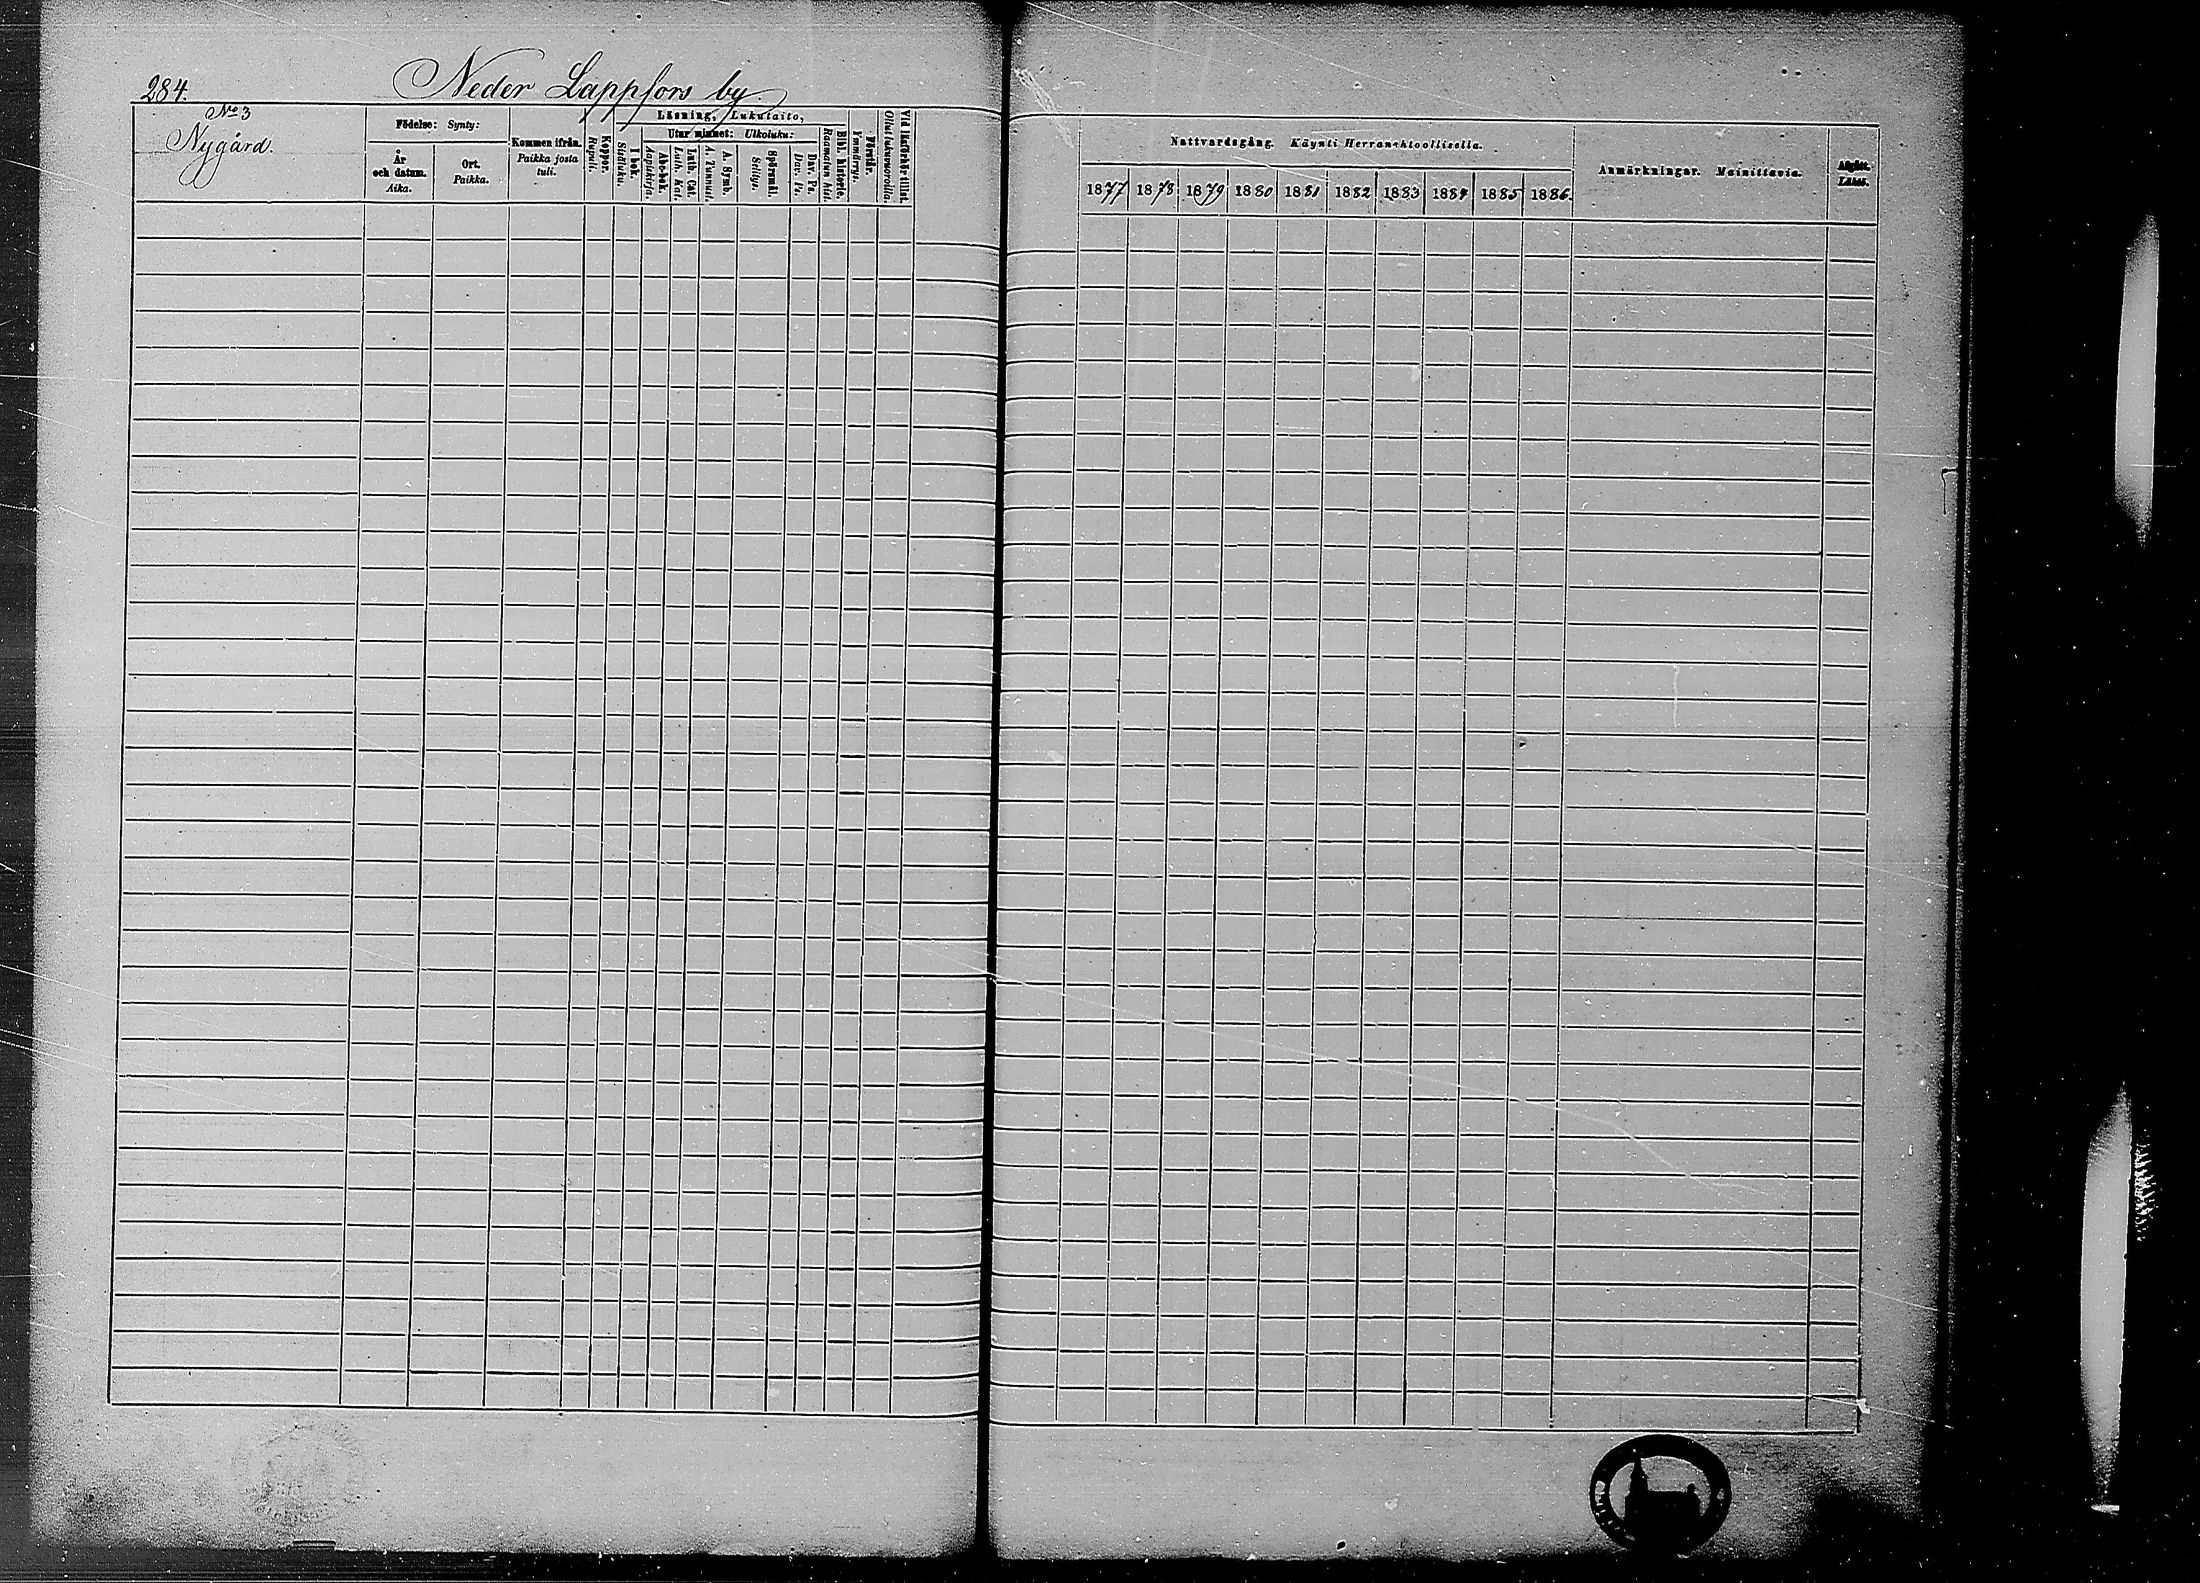 284.
Neder Lappfors by.
No 3
Nygård.
Födelse: Synty:
År och datum. Aika.
Ort. Paikka.
Kommen ifrån. Paikka josta tuli.
Koppor. Rupuli.
Läsning, Lukutaito,
I bok. Sisäluku.
Utur minnet: Ulkoluku:
Abc-bok. Aapiskirja.
Luth. Cat. Luth. Kat.
A. Symb. A. Tunnust.
Spörsmål. Selitys.
Dav. Ps. Dav. Ps.
Bibl. historie. Raamatun hist.
Förstår. Ymmärrys.
Vid läsförhör tillst. Ollut lukuvuorolla.
Nattvardsgång. Käynti Herran ehtoollisella.
1877 1878 1879 1880 1881 1882 1883 1884 1885 1886.
Anmärkningar. Mainittavia.
Afgått.